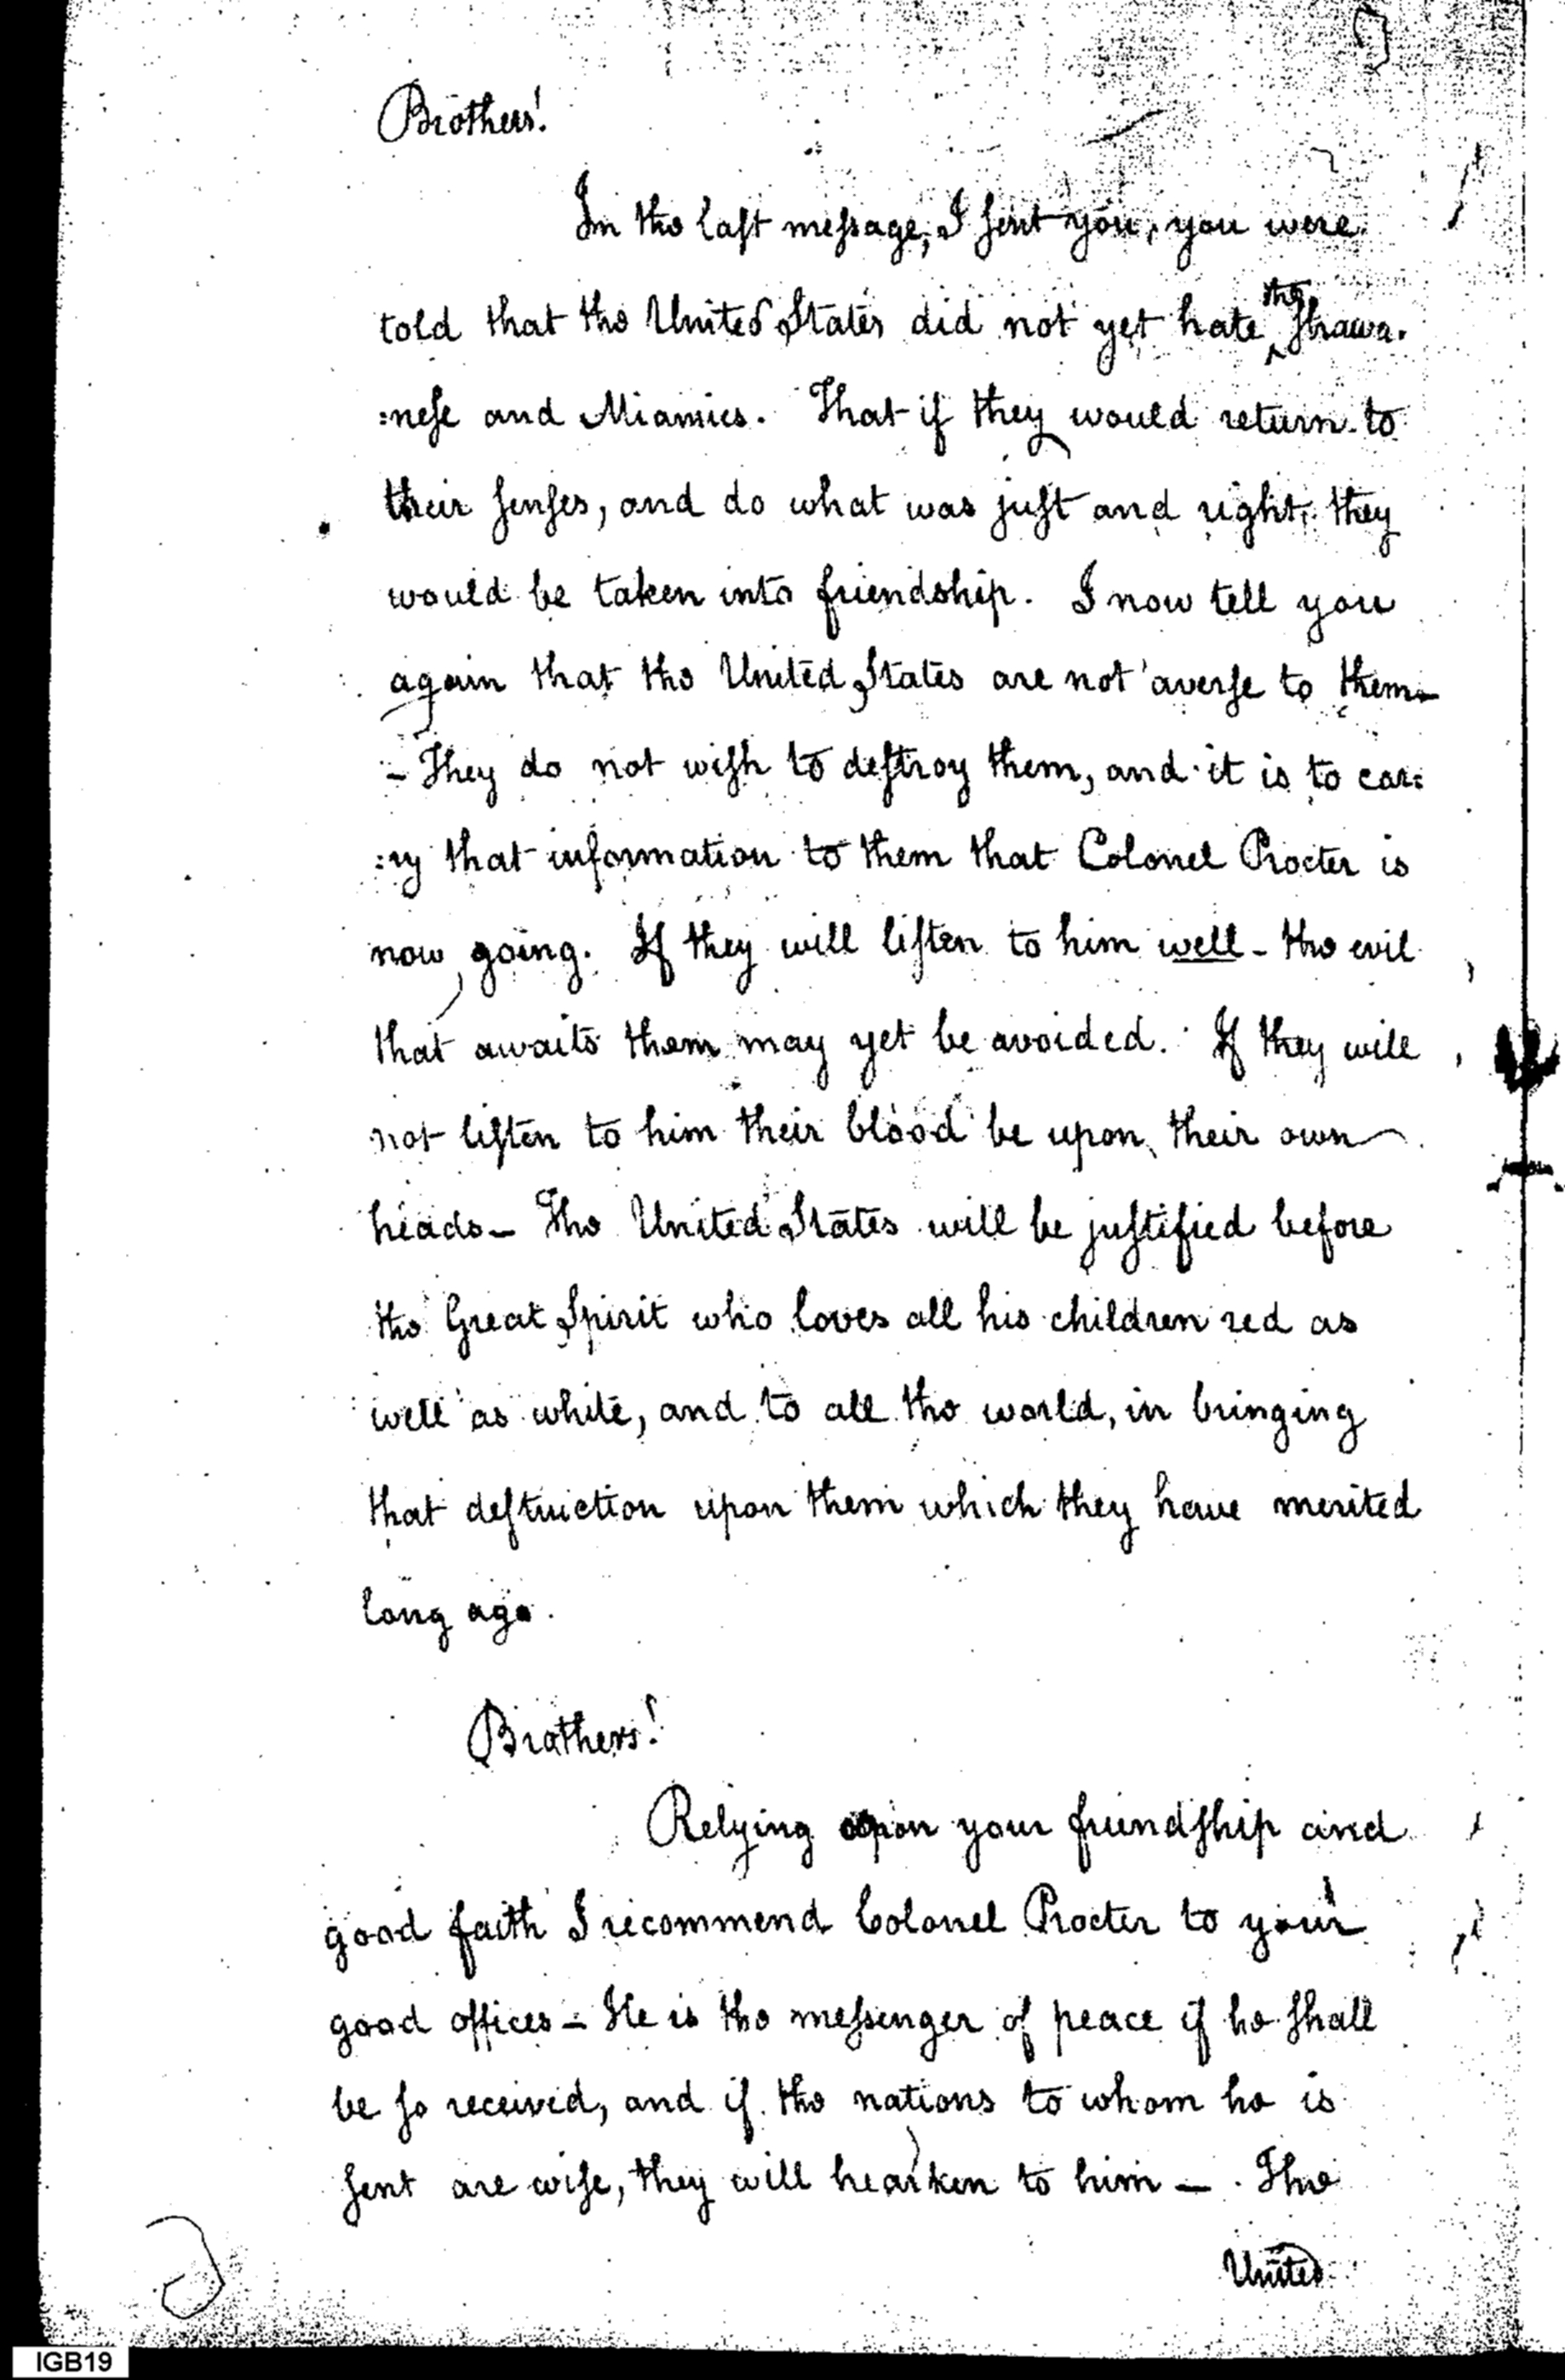 Brothers!
In the laſt meſsage, I ſent you, you were
told that the United States did not yet hate the Shawa.
:neſe and Miamies. That if they would return to
their ſenſes, and do what was juſt and right, they
would be taken into friendship. I now tell you
again that the United States are not averſe to them–
– They do not wiſh to deſtroy them, and it is to car:
:ry that information to them that Colonel Procter is
now going. If they will liſten to him well – the evil
that awaits them may yet be avoided. If they will
not liſten to him their blood be upon their own
heads – The United States will be juſtified before
the Great Spirit who loves all his children red as
well as white, and to all the world, in bringing
that deſtruction upon them which they have merited
long ago.
Brothers!
Relying upon your friendſhip and
good faith I recommend Colonel Procter to your
good offices – He is the meſsenger of peace if he ſhall
be ſo received, and if the nations to whom he is
ſent are wiſe, they will hearken to him – . The
United
IGB19